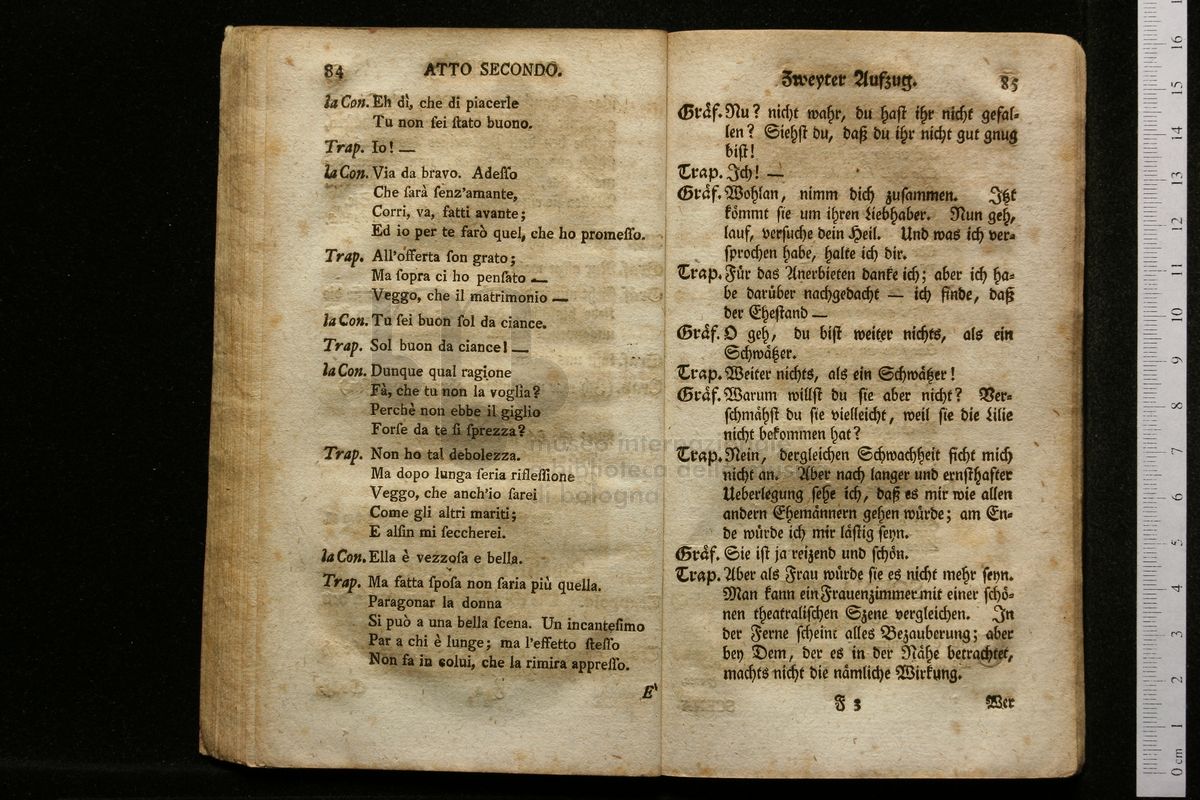 84 ATTO SECONDO.
la Con. Eh dì, che di piacerle
Tu non ſei ſtato buono.
Trap. Io! —
la Con. Via da bravo. Adeſſo
Che ſarà ſenz'amante,
Corri, va, fatti avante;
Ed io per te farò quel, che ho promeſſo.
Trap. All'offerta ſon grato;
Ma ſopra ci ho penſato —
Veggo, che il matrimonio —
la Con. Tu ſei buon ſol da ciance.
Trap. Sol buon da ciance! —
la Con. Dunque qual ragione
Fà, che tu non la voglia?
Perchè non ebbe il giglio
Forſe da te ſi ſprezza?
Trap. Non ho tal debolezza.
Ma dopo lunga ſeria rifleſſione
Veggo, che anch'io ſarei
Come gli altri mariti;
E alfin mi ſeccherei.
la Con. Ella è vezzoſa e bella.
Trap. Ma fatta ſpoſa non ſaria più quella.
Paragonar la donna
Si può a una bella ſcena. Un incanteſimo
Par a chi è lunge; ma l'effetto ſteſſo
Non fa in colui, che la rimira appreſſo.
E'
Zweyter Aufzug. 85
Gräf. Nu? nicht wahr, du haſt ihr nicht gefal-
len? Siehſt du, daß du ihr nicht gut gnug
biſt!
Trap. Ich! —
Gräf. Wohlan, nimm dich zuſammen. Itzt
kömmt ſie um ihren Liebhaber. Nun geh,
lauf, verſuche dein Heil. Und was ich ver-
ſprochen habe, halte ich dir.
Trap. Für das Anerbieten danke ich; aber ich ha-
be darüber nachgedacht — ich finde, daß
der Eheſtand —
Gräf. O geh, du biſt weiter nichts, als ein
Schwätzer.
Trap. Weiter nichts, als ein Schwätzer!
Gräf. Warum willſt du ſie aber nicht? Ver-
ſchmähſt du ſie vielleicht, weil ſie die Lilie
nicht bekommen hat?
Trap. Nein, dergleichen Schwachheit ficht mich
nicht an. Aber nach langer und ernſthafter
Ueberlegung ſehe ich, daß es mir wie allen
andern Ehemännern gehen würde; am En-
de würde ich mir läſtig ſeyn.
Gräf. Sie iſt ja reizend und ſchön.
Trap. Aber als Frau würde ſie es nicht mehr ſeyn.
Man kann ein Frauenzimmer mit einer ſchö-
nen theatraliſchen Szene vergleichen. In
der Ferne ſcheint alles Bezauberung; aber
bey Dem, der es in der Nähe betrachtet,
machts nicht die nämliche Wirkung.
F 3 Wer
museo internazionale
biblioteca della musica
di bologna
0 cm 1 2 3 4 5 6 7 8 9 10 11 12 13 14 15 16